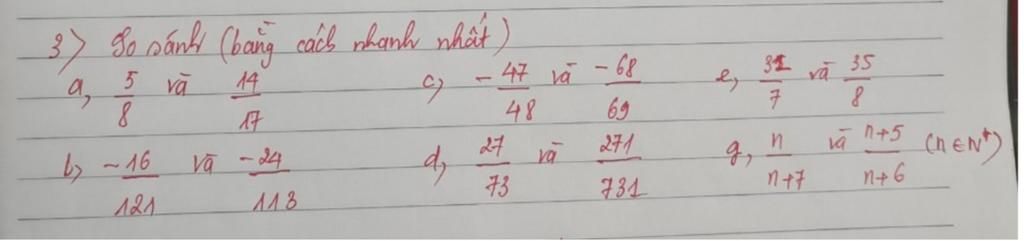 3) So sánh (bằng cách nhanh nhất)
a, 5/8 và 14/17 c) -47/48 và -68/69 e, 31/7 và 35/8
b) -16/121 và -24/113 d, 27/73 và 271/731 g, n/n+7 và n+5/n+6 (n ∈ N*)